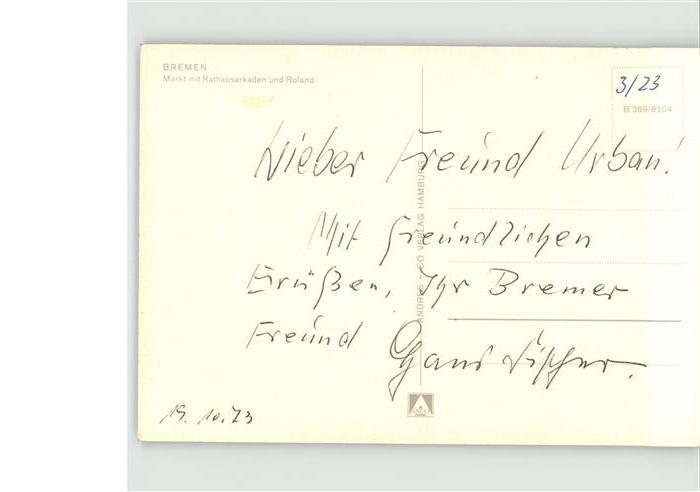 BREMEN
Markt mit Rathausarkaden und Roland
3/23
B 389/8104
Lieber Freund Urban!
Mit freundlichen
Grüßen, Ihr Bremer
Freund Hans
19. 10. 73
ANDRES + CO VERLAG HAMBURG